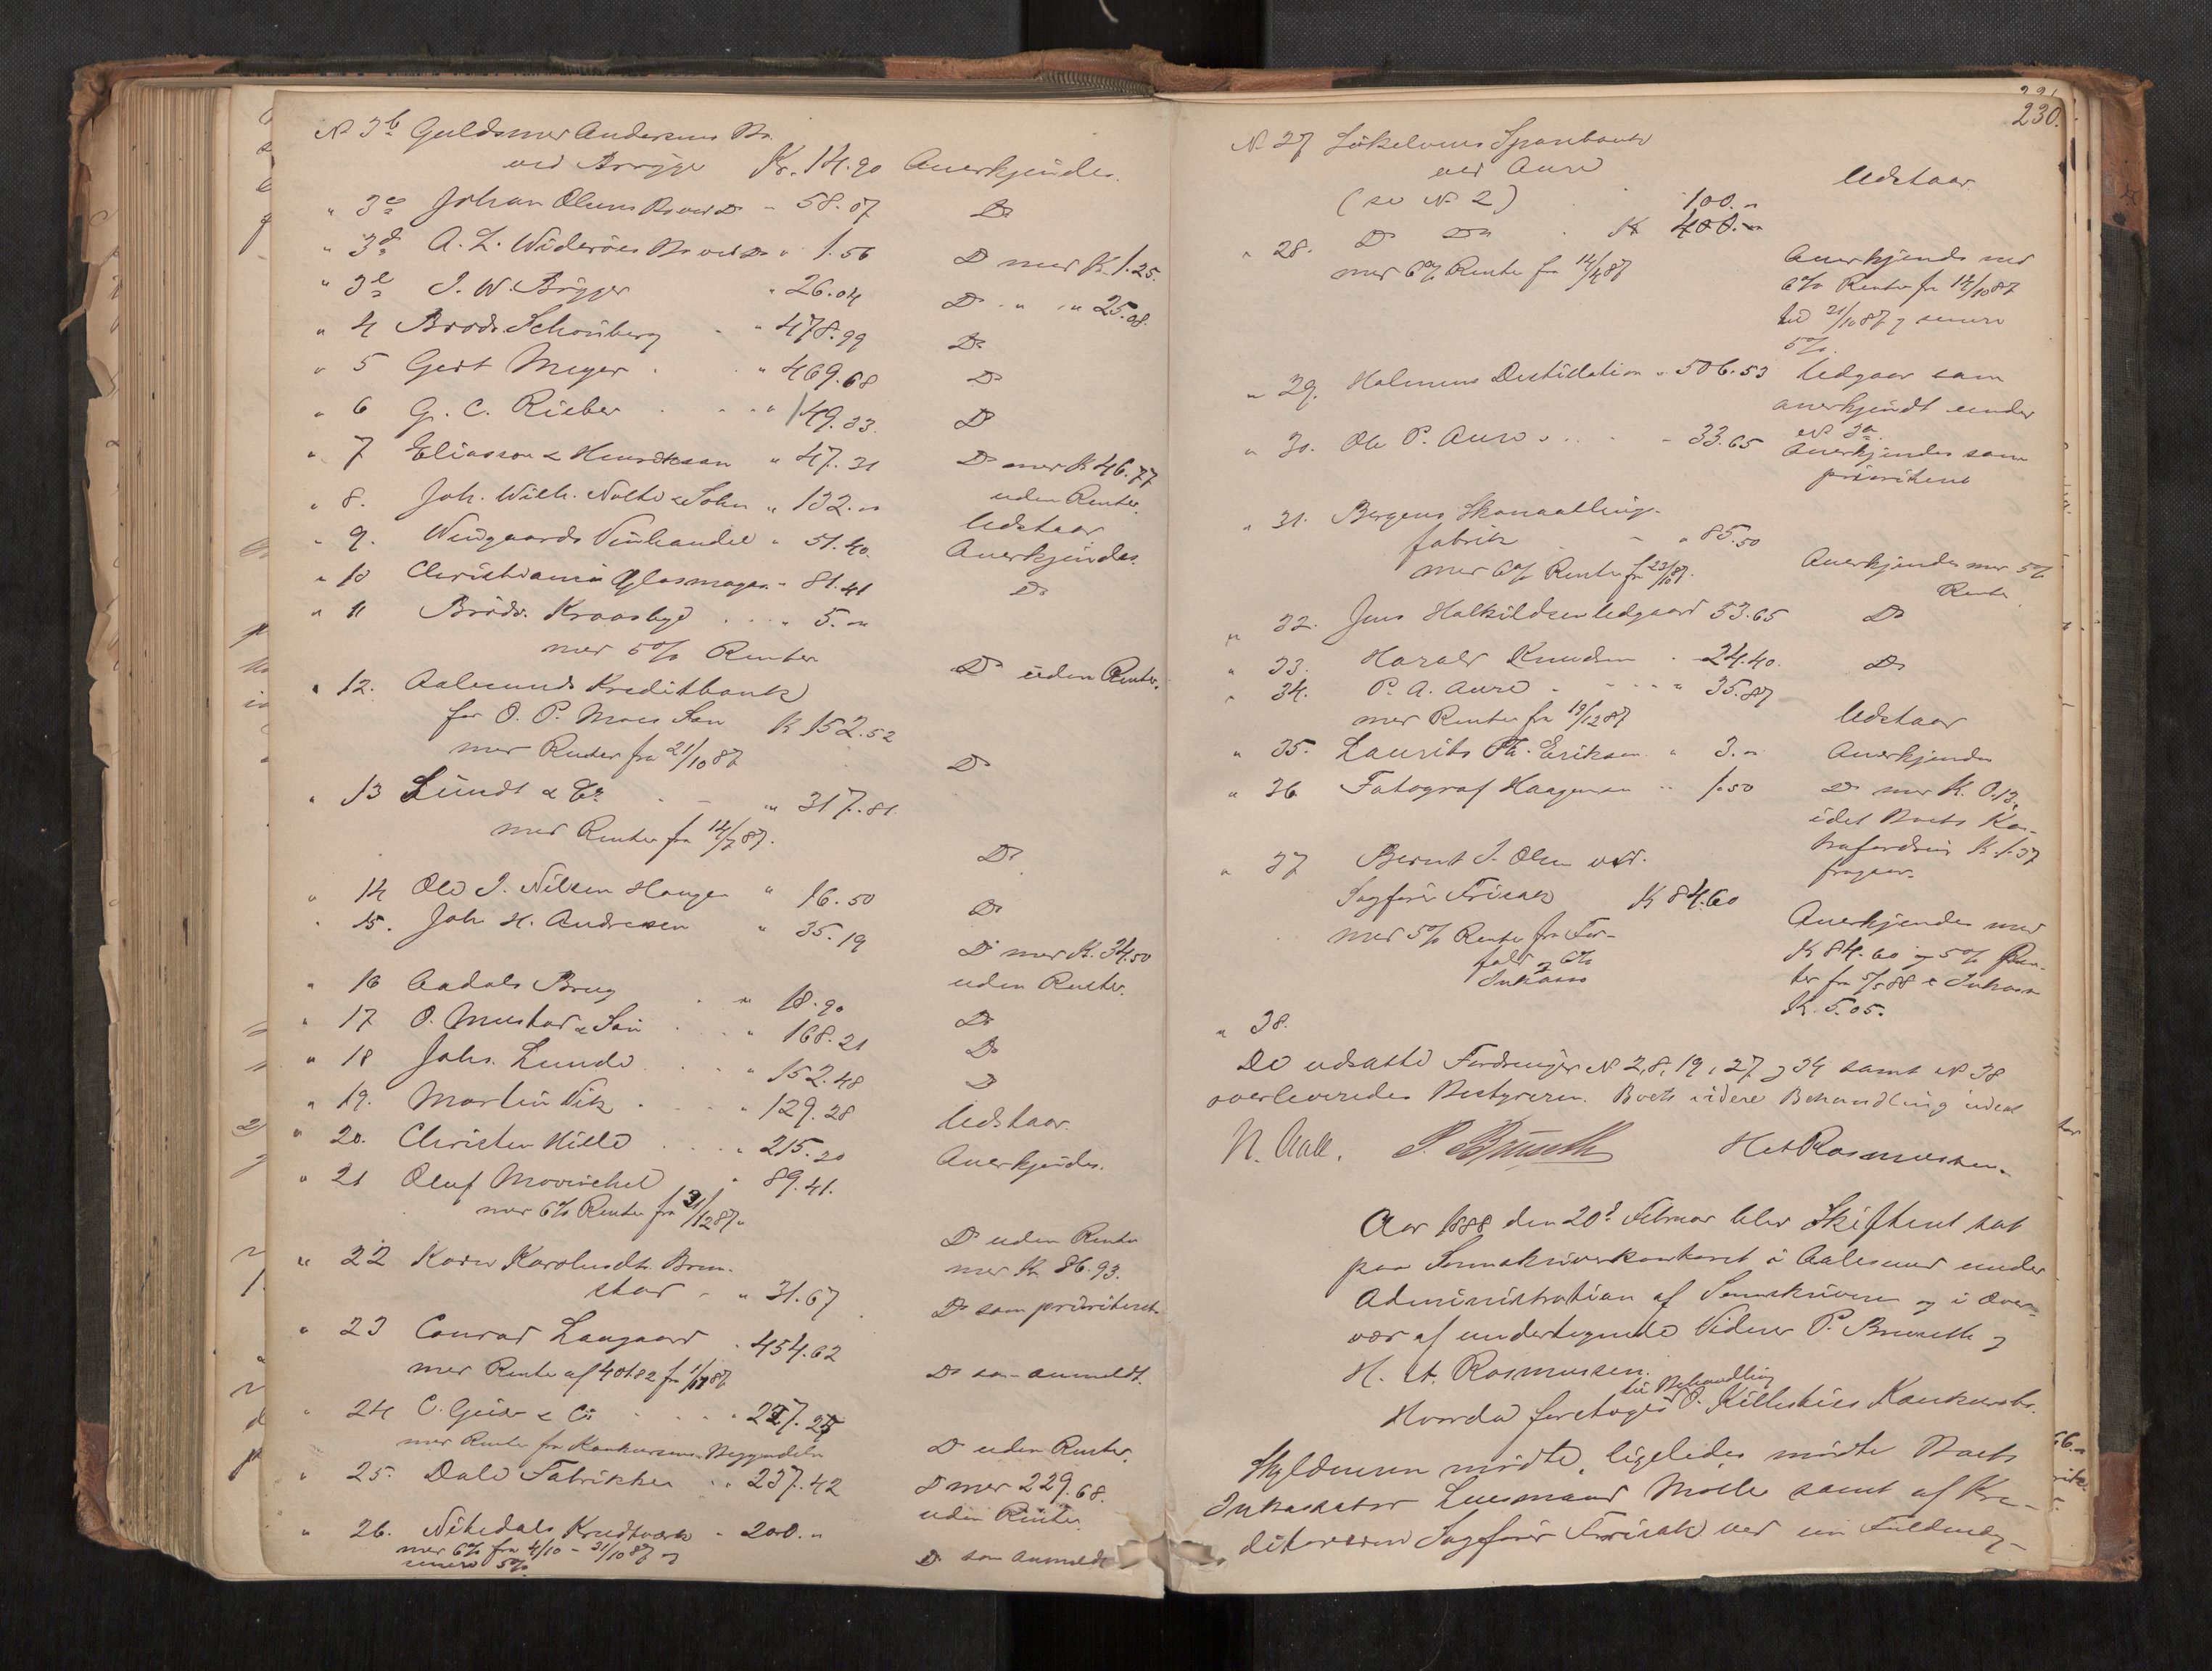 N 3b Guldsmed Andersens Bo
ved Brygge Kr. 14.90 Anerkjendes.
" 3c Johan Olsens Bo ved Do - 58.07 Do
" 3d A. L. Widerøes Bo ved Do " 1.56 Do med K. 1.25.
" 3e J. W. Brygger " 26.04 Do " " 25.08.
" 4 Brødr. Schönberg " 478.99 Do
" 5 Gert Meyer " 469.68 Do
" 6 G. C. Rieber " 149.33. Do
" 7 Eliasson & Henriksen " 47.31 Do med K 46.77
uden Renter.
" 8. Joh. Wilh. Nolte & Sohn " 132. " Udstaar
" 9. Wingaards Vinhandel " 51.40. Anerkjendes.
" 10 Christiania Glasmagas. " 81.41 Do
" 11 Brødr. Kraasbye " 5. "
med 5% Renter Do uden Renter.
" 12. Aalesunds Kreditbank
for O. P. Moes Søn K 152.52
med Renter fra 21/10 87 Do
" 13 Lundt & Co " 317.81.
med Renter fra 14/7 87. Do
" 14 Ole J. Nilsen Haugen " 16.50 Do
" 15. Joh. H. Andresen " 35.19 Do med K. 34.50
uden Renter.
" 16 Aadals Brug " 18.90 Do
" 17 O. Mustad & Søn " 168.21 Do
" 18 Johs. Lunde " 152.48 Do
" 19. Martin Vik " 129.28 Udstaar.
" 20. Christen Hille " 215.20 Anerkjendes.
" 21 Oluf Mowinckel " 89.41.
med 6% Renter fra 31/12 87. Do uden Renter
med Kr 86.93.
" 22 Karen Karolusdtr. Brun-
stad " 31.67 Do som prioriteret.
" 23 Conrad Langaard " 454.62
med Renter af 401.82 fra 1/11 87 Do som anmeldt.
" 24 C. Geijer & Co " 227.25
med Renter fra Konkursens Begyndelse Do uden Renter.
" 25. Dale Fabrikker " 237.42 Do med 229.68.
uden Renter.
" 26. Nitedals Krudtværk " 200. "
med 6% fra 4/10 - 21/10 87 og
senere 5%. Do som anmeldt
230.
N 27 Søkelvens Sparebank
ved Aure
(se N 2) 100. " Udstaar.
" 28. Do Do K 400. "
med 6% Renter fra 14/4 87 Anerkjendes med
6% Renter fra 14/10 87
til 21/10 87 og senere
5%.
" 29. Holmens Destillation " 506.53 Udgaar som
anerkjendt under
N 3a.
" 30. Ole P. Aure " 33.65 Anerkjendes som
prioriteret
" 31. Bergens Skomatlings-
fabrik " 85.50
med 6% Renter fra 23/10 87. Anerkjendes med 5%
Rente
" 32. Jens Halkildsen Udgaard 53.65 Do
" 33. Harald Knudsen " 24.40. Do
" 34. P. A. Aure " 35.87
med Renter fra 19/12 87 Udstaar
" 35. Laurits Th. Eriksen " 3. " Anerkjendes
" 36 Fotograf Haagensen " 1.50 Do med K. 0.13,
idet Boets Kon-
trafordring K. 1.37
fragaar.
" 37 Bernt J. Olsen ved
Sagfører Frisak K 84.60
med 5% Renter fra For-
fald og 6%
Inkasso Anerkjendes med
K 84.60 og 5% Ren-
ter fra 5/5 88 & Inkasso
K. 5.05.
" 38.
De udsatte Fordringer N 2, 8, 19, 27 og 34 samt N 38
overleveredes Bestyreren. Boets videre Behandling udsat
N. Aall. P. Brunseth H A Rasmussen.
Aar 1888 den 20de Februar blev Skifteret sat
paa Sorenskriverkontoret i Aalesund under
Administration af Sorenskriveren og i Over-
vær af undertegnede Vidner P. Brunseth og
H. A. Rasmussen.
Hvorda foretoges til Behandling O. Killestiens Konkursbo.
Skyldneren mødte, ligeledes mødte Boets
Inkassator Lensmand Molle samt af Kre-
ditorerne Sagfører Frisak ved sin Fuldmæg-